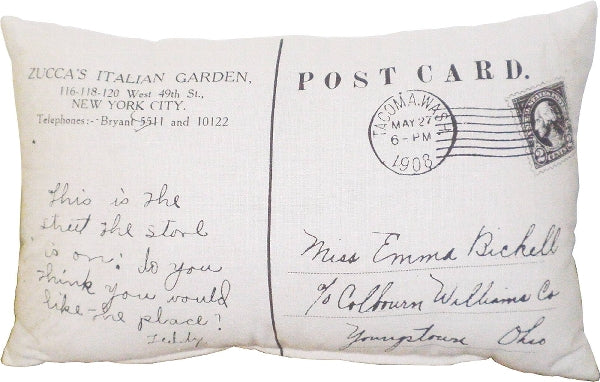 ZUCCA'S ITALIAN GARDEN,
116-118-120 West 49th St.,
NEW YORK CITY.
Telephones:- Bryant 5511 and 10122
This is the
street the store
is on: do you
think you would
like the place?
Teddy
POST CARD.
TACOMA, WASH.
MAY 27
6-PM
1908
2
Miss Emma Bickell
℅ Colbourn Williams Co
Youngstown Ohio